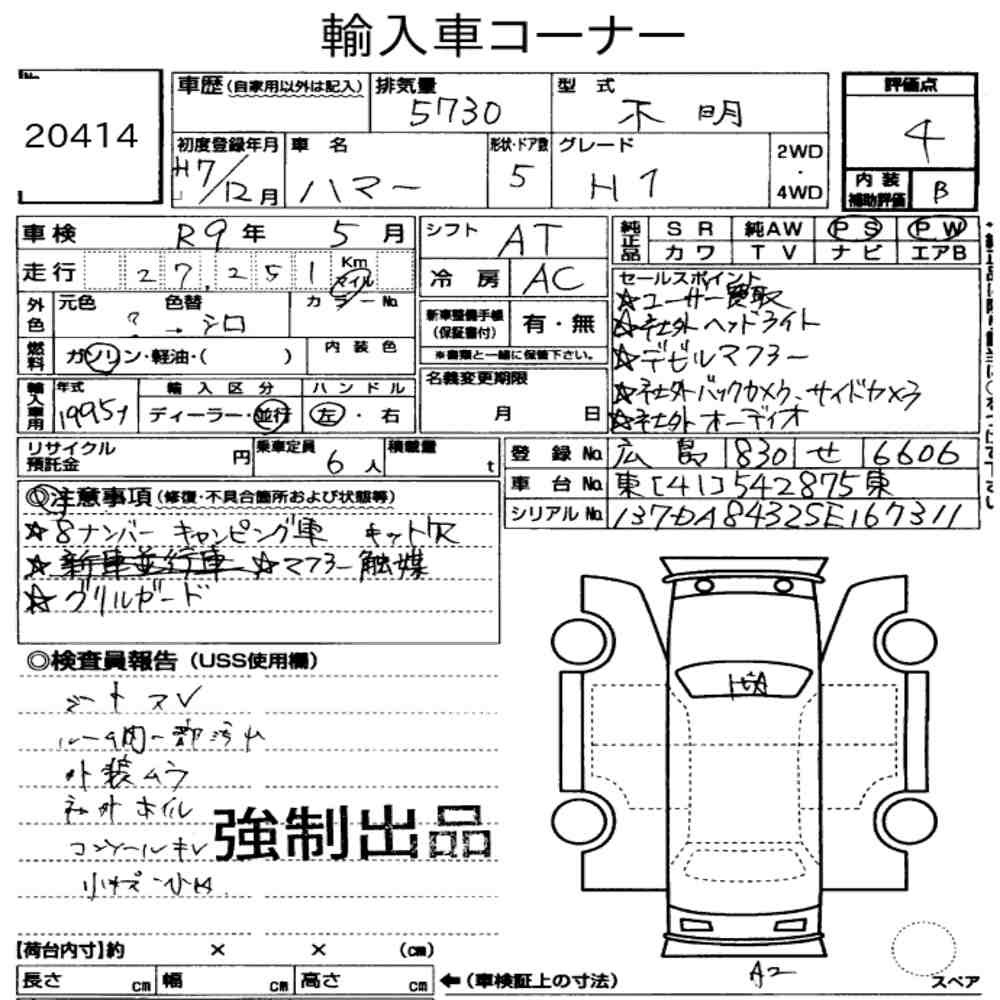 輸入車コーナー
No.
20414
車歴(自家用以外は記入)
排気量
5730
型式
不明
評価点
4
初度登録年月
H7/12月
車名
ハマー
形状・ドア数
5
グレード
H1
2WD
・
4WD
内装
補助評価
B
車検
R9年 5月
シフト
AT
純正品
SR 純AW PS PW
カワ TV ナビ エアB
走行
27,251
Km
マイル
冷房
AC
セールスポイント
☆ユーザー買取
☆社外ヘッドライト
☆デビルマフラー
☆社外バックカメラ、サイドカメラ
☆社外オーディオ
外色
元色 色替
? → シロ
カラーNo.
新車整備手帳
(保証書付)
有・無
※書類と一緒に保管下さい。
燃料
ガソリン・軽油・( )
内装色
名義変更期限
月 日
輸入車用
年式
1995y
輸入区分
ディーラー・並行
ハンドル
左・右
リサイクル
預託金
円
乗車定員
6人
積載量
t
登録No.
広島 830 せ 6606
車台No.
東[41]542875東
シリアルNo.
137DA8432SE167311
◎注意事項(修復・不具合箇所および状態等)
☆8ナンバー キャンピング車 キット欠
☆新車並行車 ☆マフラー触媒
☆グリルガード
◎検査員報告(USS使用欄)
シートスレ
ルーフ内一部汚れ
外装ムラ
社外ホイル
コンソールキレ
強制出品
【荷台内寸】約 × × (cm)
長さ cm 幅 cm 高さ cm
←(車検証上の寸法)
A2
スペア